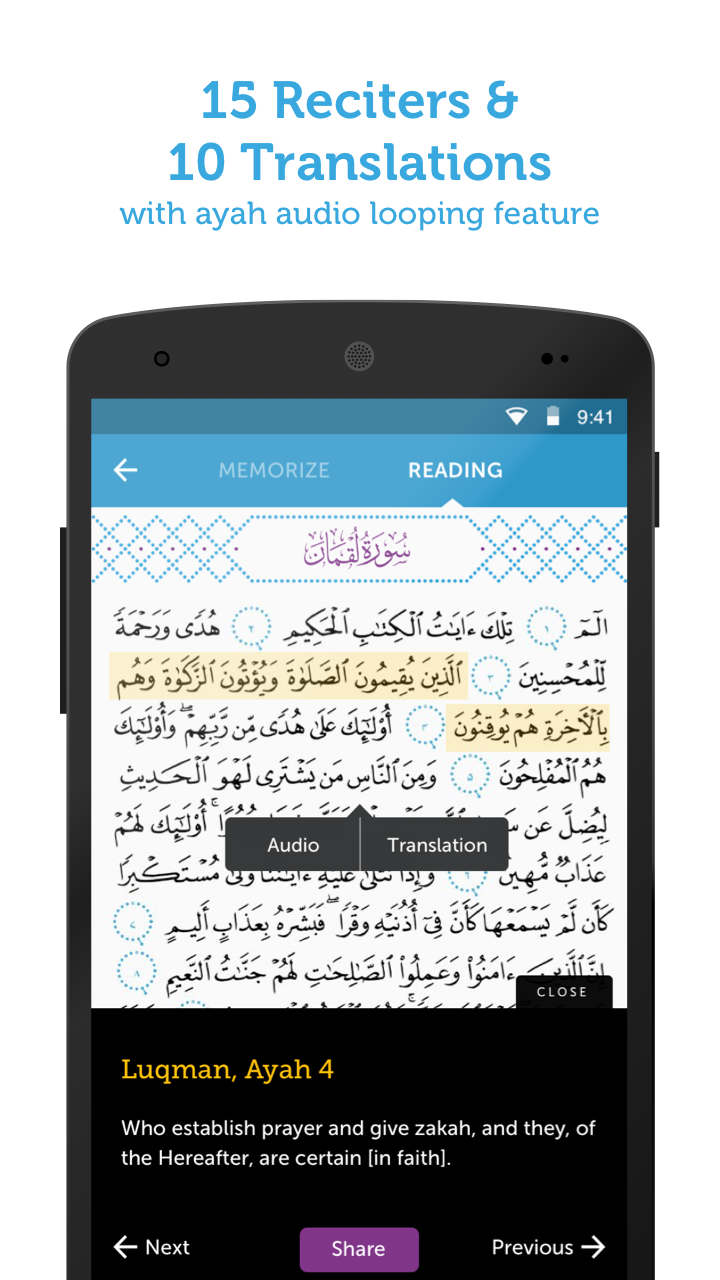 15 Reciters &
10 Translations
with ayah audio looping feature
9:41
MEMORIZE READING
سُورَةُ لُقْمَان
الٓمٓ ١ تِلۡكَ ءَايَٰتُ ٱلۡكِتَٰبِ ٱلۡحَكِيمِ ٢ هُدٗى وَرَحۡمَةٗ
لِّلۡمُحۡسِنِينَ ٣ ٱلَّذِينَ يُقِيمُونَ ٱلصَّلَوٰةَ وَيُؤۡتُونَ ٱلزَّكَوٰةَ وَهُم
بِٱلۡأٓخِرَةِ هُمۡ يُوقِنُونَ ٤ أُوْلَٰٓئِكَ عَلَىٰ هُدٗى مِّن رَّبِّهِمۡۖ وَأُوْلَٰٓئِكَ
هُمُ ٱلۡمُفۡلِحُونَ ٥ وَمِنَ ٱلنَّاسِ مَن يَشۡتَرِي لَهۡوَ ٱلۡحَدِيثِ
لِيُضِلَّ عَن أُوْلَٰٓئِكَ لَهُمۡ
عَذَابٞ مُّهِينٞ ٦ وَإِذَا تُتۡلَىٰ عَلَيۡهِ ءَايَٰتُنَا وَلَّىٰ مُسۡتَكۡبِرٗا
كَأَن لَّمۡ يَسۡمَعۡهَا كَأَنَّ فِيٓ أُذُنَيۡهِ وَقۡرٗاۖ فَبَشِّرۡهُ بِعَذَابٍ أَلِيمٍ ٧
إِنَّ ٱلَّذِينَ ءَامَنُواْ وَعَمِلُواْ ٱلصَّٰلِحَٰتِ لَهُمۡ جَنَّٰتُ ٱلنَّعِيمِ ٨
Audio Translation
CLOSE
Luqman, Ayah 4
Who establish prayer and give zakah, and they, of
the Hereafter, are certain [in faith].
← Next Share Previous →